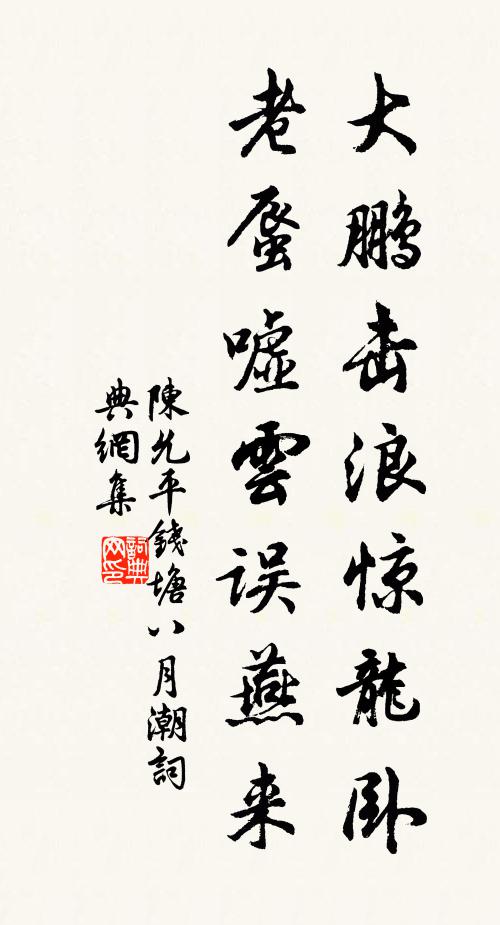 大鹏击浪惊龍卧
老蜃嘘雲误燕来
陳允平錢塘八月潮詞
典網集
詞典
网印